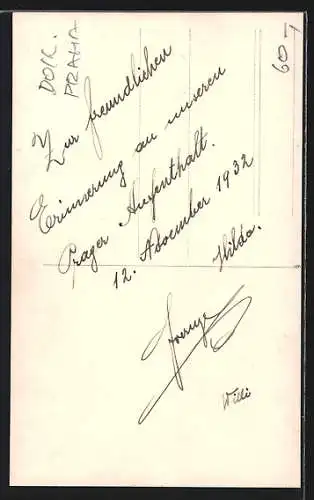 DOIK.
PRAHA
60
Zur freundlichen
Erinnerung an unseren
Prager Aufenthalt.
12. November 1932
Hilda.
Willi